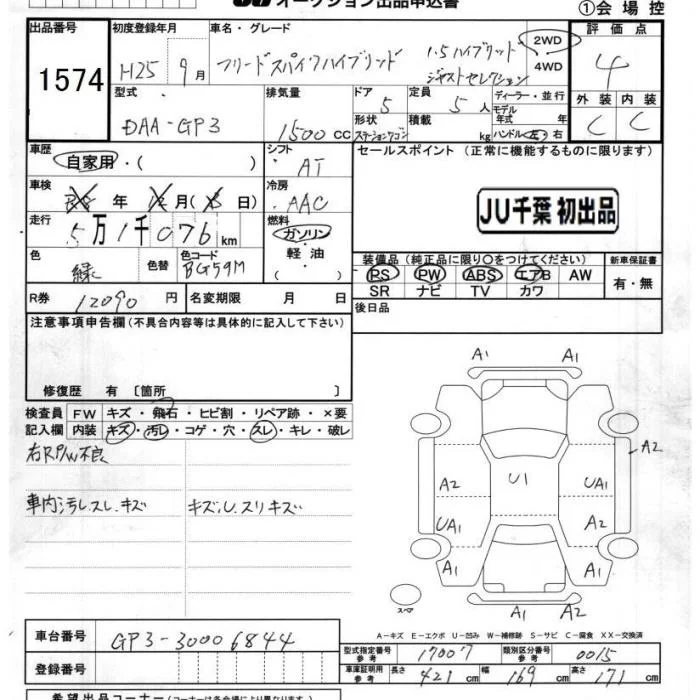 オークション出品申込書 ①会場控
出品番号 初度登録年月 車名・グレード 評価点
1574 H25 9月 フリードスパイクハイブリッド 1.5ハイブリッド ジャストセレクション 2WD 4WD 4
型式 排気量 ドア 定員 ディーラー・並行 外装 内装
DAA-GP3 1500cc 5 5人 モデル年式 年 C C
形状 ステーションワゴン 積載 kg ハンドル 左 右
車歴 自家用・( ) シフト AT セールスポイント (正常に機能するものに限ります)
車検 年 月( 日) 冷房 AAC JU千葉 初出品
走行 5万1千076km 燃料 ガソリン・軽油・( )
色 緑 色替 色コード BG59M
装備品 (純正品に限り○をつけてください) 新車保証書
PS PW ABS エアB AW 有・無
SR ナビ TV カワ
R券 12090円 名変期限 月 日 後日品
注意事項申告欄 (不具合内容等は具体的に記入して下さい)
修復歴 有 〔箇所 〕
検査員 FW キズ・飛石・ヒビ割・リペア跡・×要
記入欄 内装 キズ・汚レ・コゲ・穴・スレ・キレ・破レ
右RP/W不良
車内汚レスレ.キズ キズ,U.スリキズ
A1 A1
A2
A2 U1 UA1
UA1 A2
A1 A1
A1 A2
スペア
A-キズ E-エクボ U-凹み W-補修跡 S-サビ C-腐食 XX-交換済
車台番号 GP3-30006844
型式指定番号 参考 17007 類別区分番号 参考 0015
登録番号
車庫証明用 参考 長さ 421cm 幅 169cm 高さ 171cm
希望出品コーナー (コーナーは各会場により異なります。)